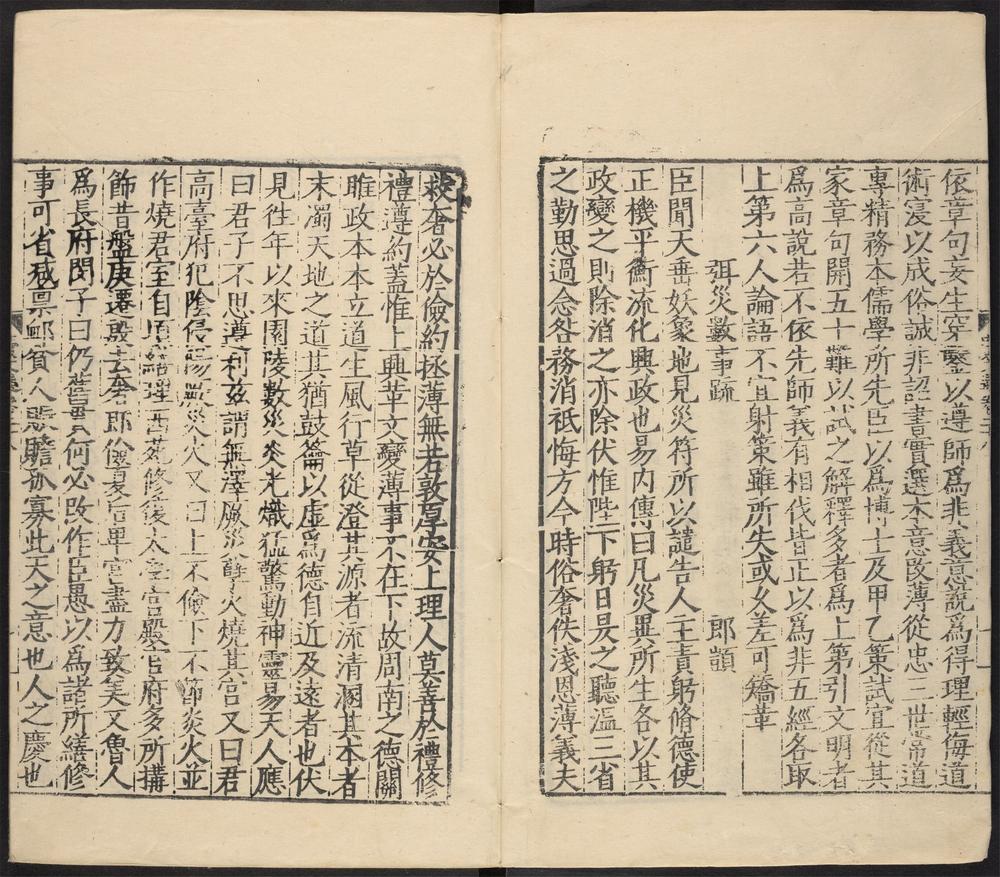 依章句妄生穿鑿以遵師爲非義意說爲得理輕侮道
術寖以成俗誠非詔書實選本意改薄從忠三世常道
專精務本儒學所先臣以爲博士及甲乙策試宜從其
家章句開五十難以試之解釋多者爲上第引文明者
爲高說若不依先師義有相伐皆正以爲非五經各取
上第六人論語不宜射策雖所失或久差可矯革
弭災數事疏 郎顗
臣聞天垂妖象地見災符所以譴告人主責躬脩德使
正機平衡流化興政也易內傳曰凡災異所生各以其
政變之則除消之亦除伏惟陛下躬日昃之聽溫三省
之勤思過念咎務消祇悔方今時俗奢佚淺恩薄義夫
救奢必於儉約拯薄無若敦厚安上理人莫善於禮修
禮遵約蓋惟上興革文變薄事不在下故周南之德關
雎政本本立道生風行草從澄其源者流清溷其本者
末濁天地之道其猶鼓籥以虛爲德自近及遠者也伏
見往年以來園陵數災炎光熾猛驚動神靈易天人應
曰君子不思遵利茲謂無澤厥災孽火燒其宮又曰君
高臺府犯陰侵陽厥災火又曰上不儉下不節炎火並
作燒君室自頃繕理西苑修復太學宮殿官府多所搆
飾昔盤庚遷殷去奢即儉夏后卑宮盡力致美又魯人
爲長府閔子曰仍舊貫何必改作臣愚以爲諸所繕修
事可省減稟䘏貧人賑贍孤寡此天之意也人之慶也